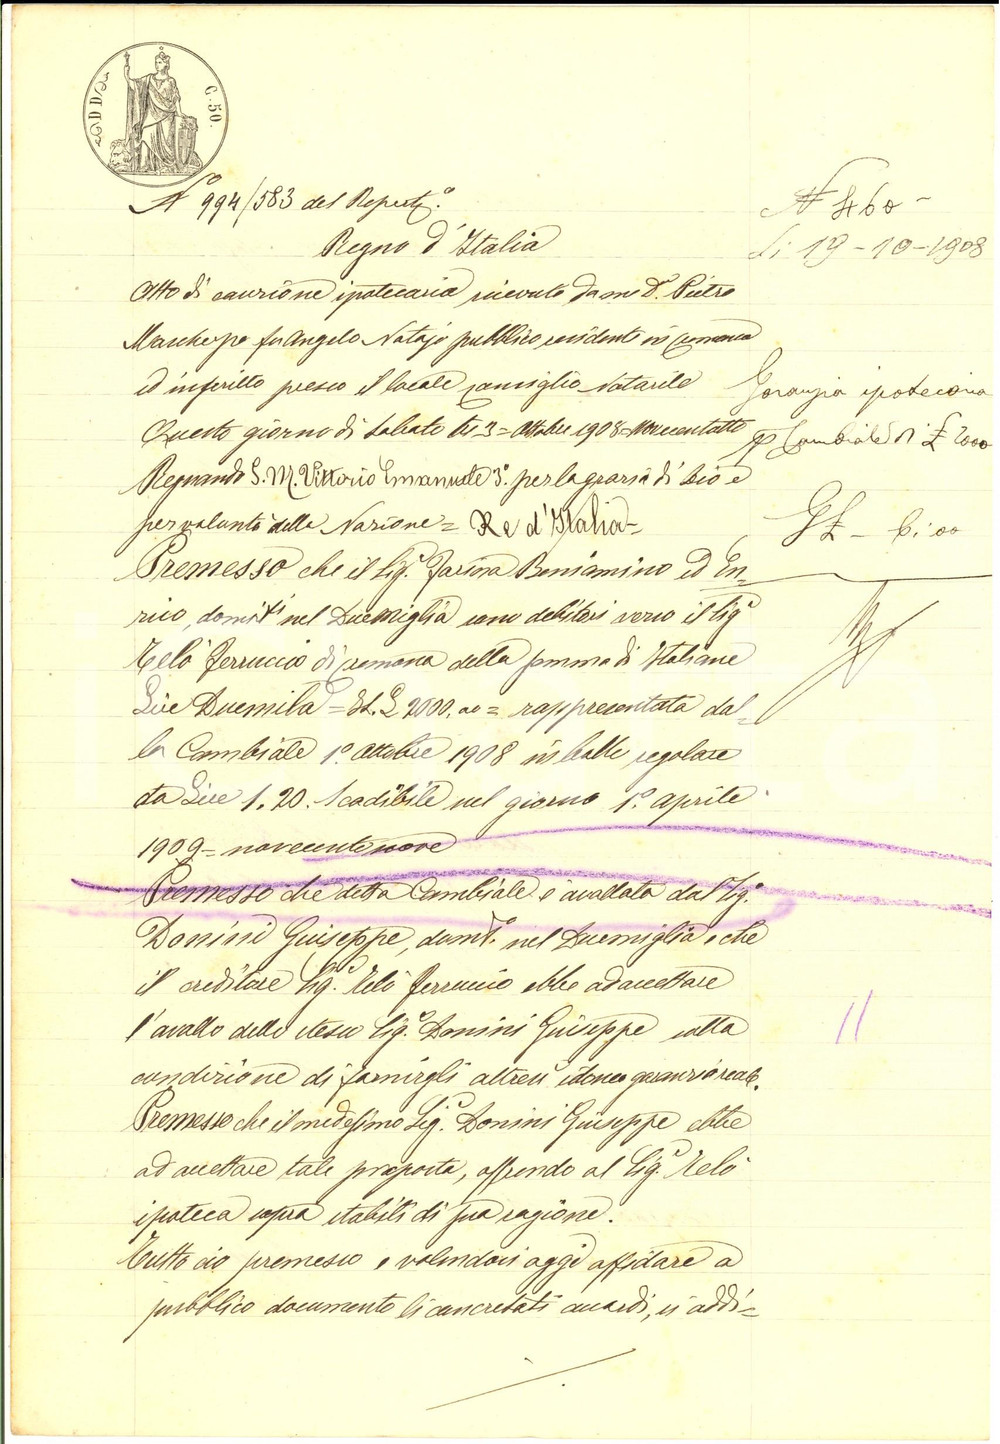 C. 50.
N.º 994/583 del Repert.º
Regno d'Italia
Atto di cauzione ipotecaria ricevuto da me D.r Pietro
fu Angelo Notajo pubblico residente in Cremona
ed inscritto presso il locale Consiglio Notarile
Questo giorno di Sabato tre 3= Ottobre 1908=novecentotto
Regnando S. M. Vittorio Emanuele 3.º per la grazia di Dio e
per volontà della Nazione = Re d'Italia=
Premesso che il Sig.r Farina Beniamino ed En-
rico, domi.ti nel Duemiglia sono debitori verso il Sig.r
Telò Ferruccio di Cremona della somma di Italiane
Lire Duemila = It. £ 2000.00= rappresentata dal-
la Cambiale 1.º Ottobre 1908 in bollo regolare
da Lire 1.20. scadibile nel giorno 1.º Aprile
1909= novecentonove
Premesso che detta Cambiale è avallata dal Sig.r
Donini Giuseppe, dom.to nel Duemiglia e che
il creditore Sig.r Telò Ferruccio ebbe ad accettare
l'avallo dello stesso Sig.r Donini Giuseppe sotto
condizione di fornirgli altresì idonea garanzia reale.
Premesso che il medesimo Sig.r Donini Giuseppe ebbe
ad accettare tale proposta, offrendo al Sig.r Telò
ipoteca sopra stabili di sua ragione.
Tutto ciò premesso e volendosi oggi affidare a
pubblico documento li concretati accordi, si addi=
N 460-
Li 19-10-1908
Garanzia ipotecaria
p Cambiale di £ 2000
£ 6:00